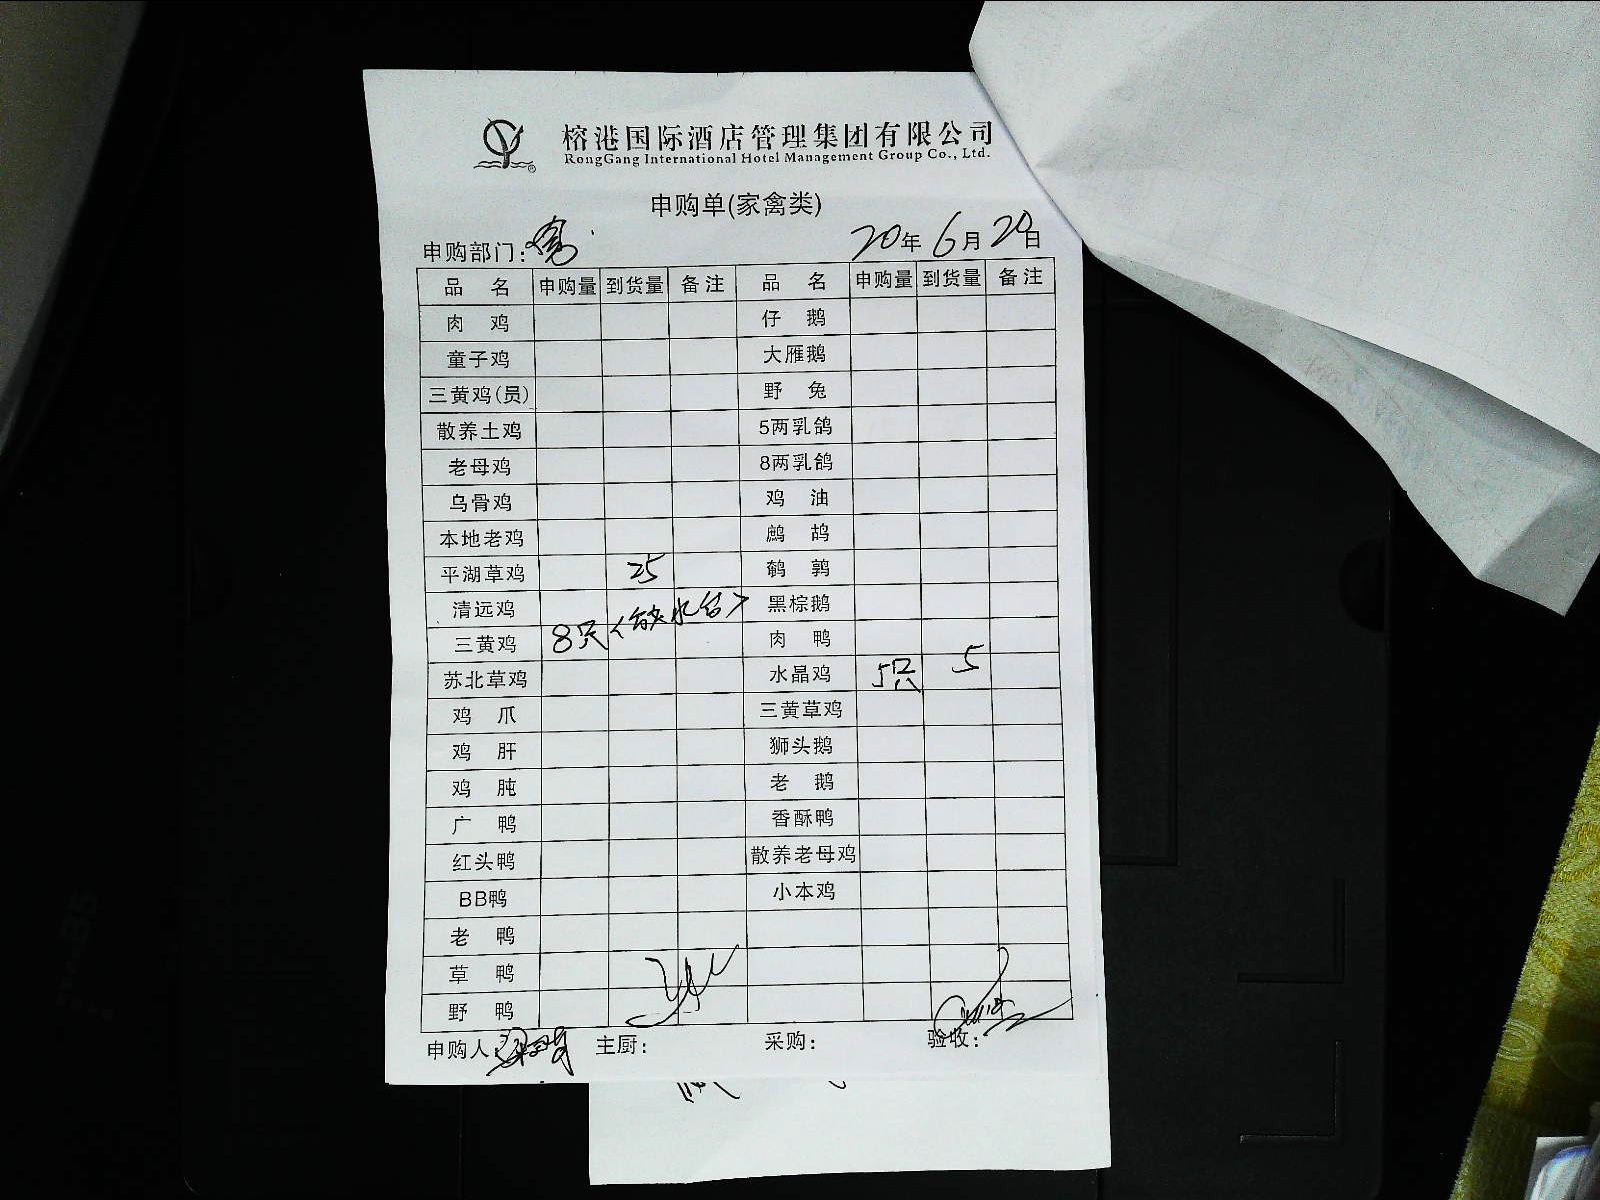 榕港国际酒店管理集团有限公司
RongGang International Hotel Management Group Co., Ltd.
申购单(家禽类)
申购部门:
20年6月20日
品名 申购量 到货量 备注 品名 申购量 到货量 备注
肉鸡 仔鹅
童子鸡 大雁鹅
三黄鸡(员) 野兔
散养土鸡 5两乳鸽
老母鸡 8两乳鸽
乌骨鸡 鸡油
本地老鸡 鹧鸪
平湖草鸡 25 鹌鹑
清远鸡 黑棕鹅
三黄鸡 8只 肉鸭
苏北草鸡 水晶鸡 5只 5
鸡爪 三黄草鸡
鸡肝 狮头鹅
鸡肫 老鹅
广鸭 香酥鸭
红头鸭 散养老母鸡
BB鸭 小本鸡
老鸭
草鸭
野鸭
申购人: 主厨: 采购: 验收: